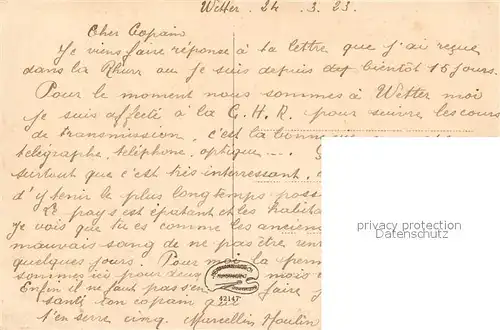 Wetter . 24 . 3. 23.
Cher Copain
Je viens faire réponse à ta lettre que j'ai reçue
dans la Rhurr ou je suis depuis bientôt 15 jours.
Pour le moment nous sommes à Wetter moi
je suis affecté à la C.H.R. pour suivre les cours
de transmission, c'est la bonne
télégraphe, téléphone, optique ---
surtout que c'est très interressant,
d'y tenir le plus longtemps
Le pays est épatant et les
Je vois que tu es comme les anciens
mauvais sang de ne pas être
quelques jours. Pour moi la
sommes ici pour deux mois
Enfin il ne faut pas s'en faire
santé ton copain que
t'en serre cinq. Marcellin Houlin
privacy protection
AKPool.de
42147